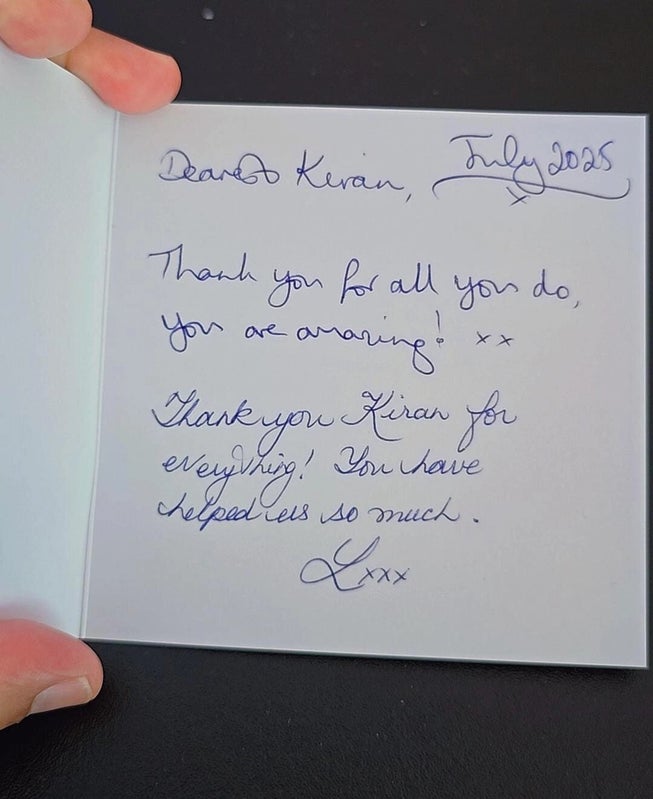 July 2025
x
Dearest Kiran,
Thank you for all you do,
you are amazing! xx
Thank you Kiran for
everything! You have
helped us so much.
Lxxx